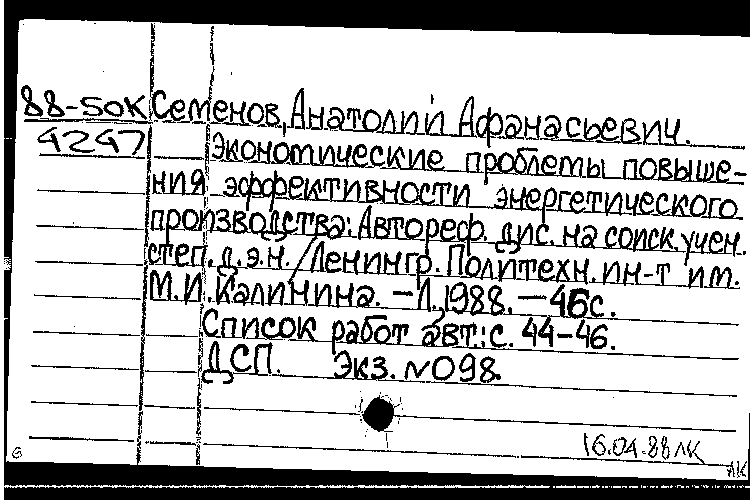 88-50К Семенов, Анатолий Афанасьевич.
4247 Экономические проблемы повыше-
ния эффективности энергетического
производства: Автореф. дис. на соиск. учен.
степ. д.э.н. / Ленингр. Политехн. ин-т им.
М.И.Калинина. – Л., 1988. – 46 с.
Список работ авт.: с. 44-46.
ДСП. Экз. № 098.
16.04.88 ЛК
ЛК